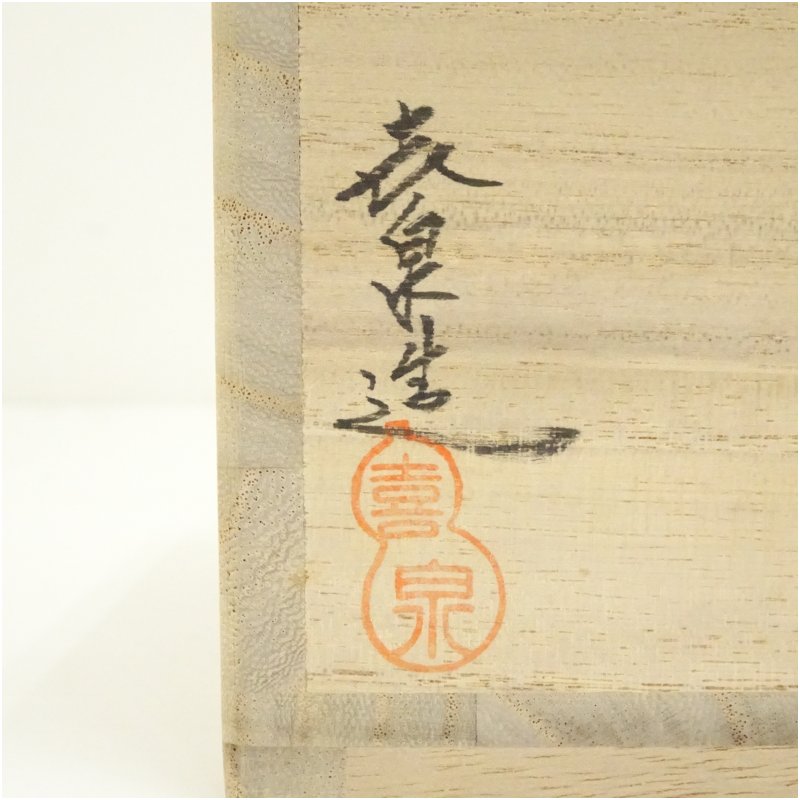 喜泉造
喜泉